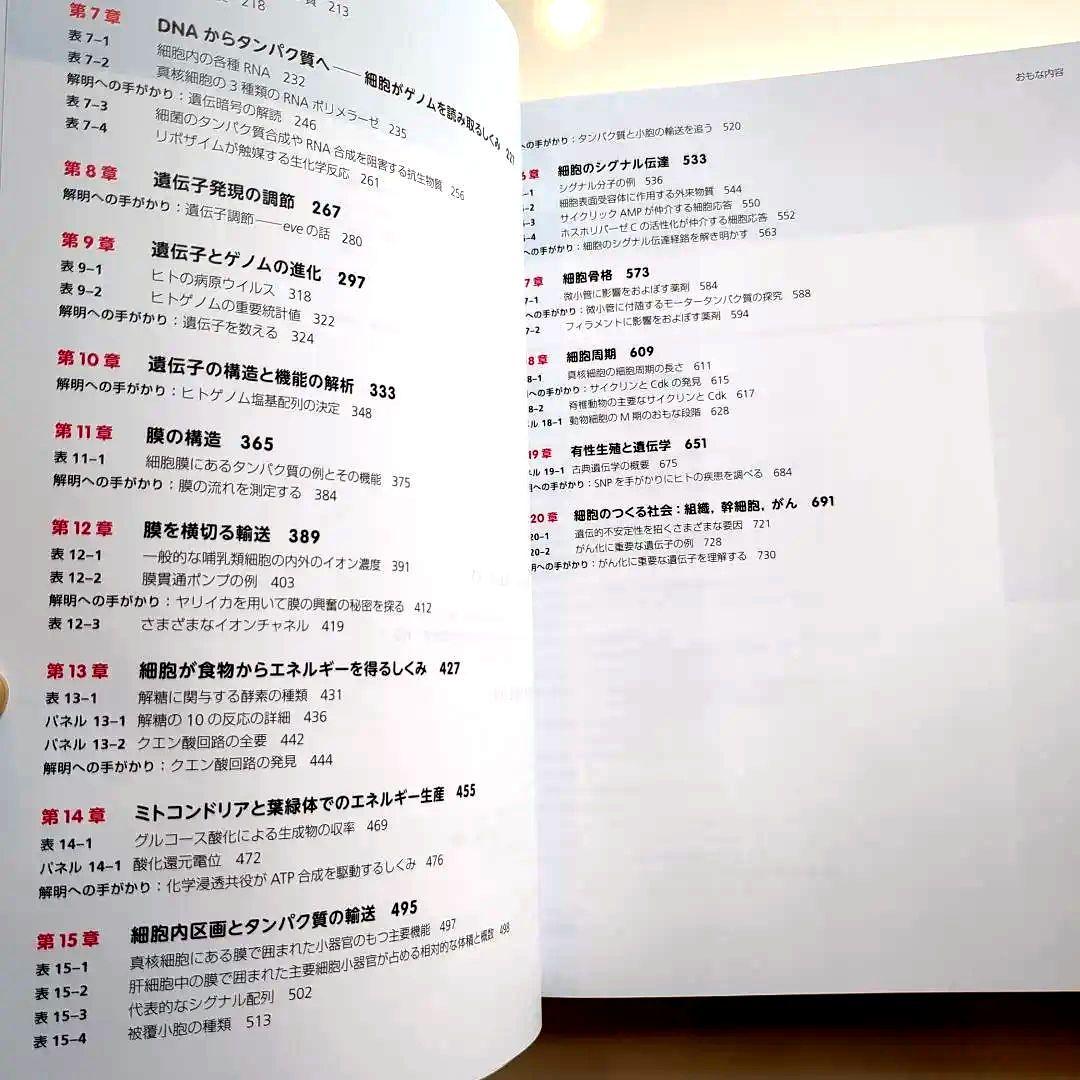 218
質 213
第7章 DNAからタンパク質へ――細胞がゲノムを読み取るしくみ
表7–1 細胞内の各種RNA 232
表7–2 真核細胞の3種類のRNAポリメラーゼ 235
解明への手がかり：遺伝暗号の解読 246
表7–3 細菌のタンパク質合成やRNA合成を阻害する抗生物質 256
表7–4 リボザイムが触媒する生化学反応 261
第8章 遺伝子発現の調節 267
解明への手がかり：遺伝子調節――eveの話 280
第9章 遺伝子とゲノムの進化 297
表9–1 ヒトの病原ウイルス 318
表9–2 ヒトゲノムの重要統計値 322
解明への手がかり：遺伝子を数える 324
第10章 遺伝子の構造と機能の解析 333
解明への手がかり：ヒトゲノム塩基配列の決定 348
第11章 膜の構造 365
表11–1 細胞膜にあるタンパク質の例とその機能 375
解明への手がかり：膜の流れを測定する 384
第12章 膜を横切る輸送 389
表12–1 一般的な哺乳類細胞の内外のイオン濃度 391
表12–2 膜貫通ポンプの例 403
解明への手がかり：ヤリイカを用いて膜の興奮の秘密を探る 412
表12–3 さまざまなイオンチャネル 419
第13章 細胞が食物からエネルギーを得るしくみ 427
表13–1 解糖に関与する酵素の種類 431
パネル 13–1 解糖の10の反応の詳細 436
パネル 13–2 クエン酸回路の全要 442
解明への手がかり：クエン酸回路の発見 444
第14章 ミトコンドリアと葉緑体でのエネルギー生産 455
表14–1 グルコース酸化による生成物の収率 469
パネル 14–1 酸化還元電位 472
解明への手がかり：化学浸透共役がATP合成を駆動するしくみ 476
第15章 細胞内区画とタンパク質の輸送 495
表15–1 真核細胞にある膜で囲まれた小器官のもつ主要機能 497
表15–2 肝細胞中の膜で囲まれた主要細胞小器官が占める相対的な体積と概数 498
表15–3 代表的なシグナル配列 502
表15–4 被覆小胞の種類 513
おもな内容
への手がかり：タンパク質と小胞の輸送を追う 520
6章 細胞のシグナル伝達 533
–1 シグナル分子の例 536
–2 細胞表面受容体に作用する外来物質 544
–3 サイクリックAMPが仲介する細胞応答 550
–4 ホスホリパーゼCの活性化が仲介する細胞応答 552
への手がかり：細胞のシグナル伝達経路を解き明かす 563
7章 細胞骨格 573
7–1 微小管に影響をおよぼす薬剤 584
への手がかり：微小管に付随するモータータンパク質の探究 588
7–2 フィラメントに影響をおよぼす薬剤 594
8章 細胞周期 609
8–1 真核細胞の細胞周期の長さ 611
への手がかり：サイクリンとCdkの発見 615
8–2 脊椎動物の主要なサイクリンとCdk 617
ル 18–1 動物細胞のM期のおもな段階 628
19章 有性生殖と遺伝学 651
ル 19–1 古典遺伝学の概要 675
への手がかり：SNPを手がかりにヒトの疾患を調べる 684
20章 細胞のつくる社会：組織，幹細胞，がん 691
20–1 遺伝的不安定性を招くさまざまな要因 721
20–2 がん化に重要な遺伝子の例 728
への手がかり：がん化に重要な遺伝子を理解する 730